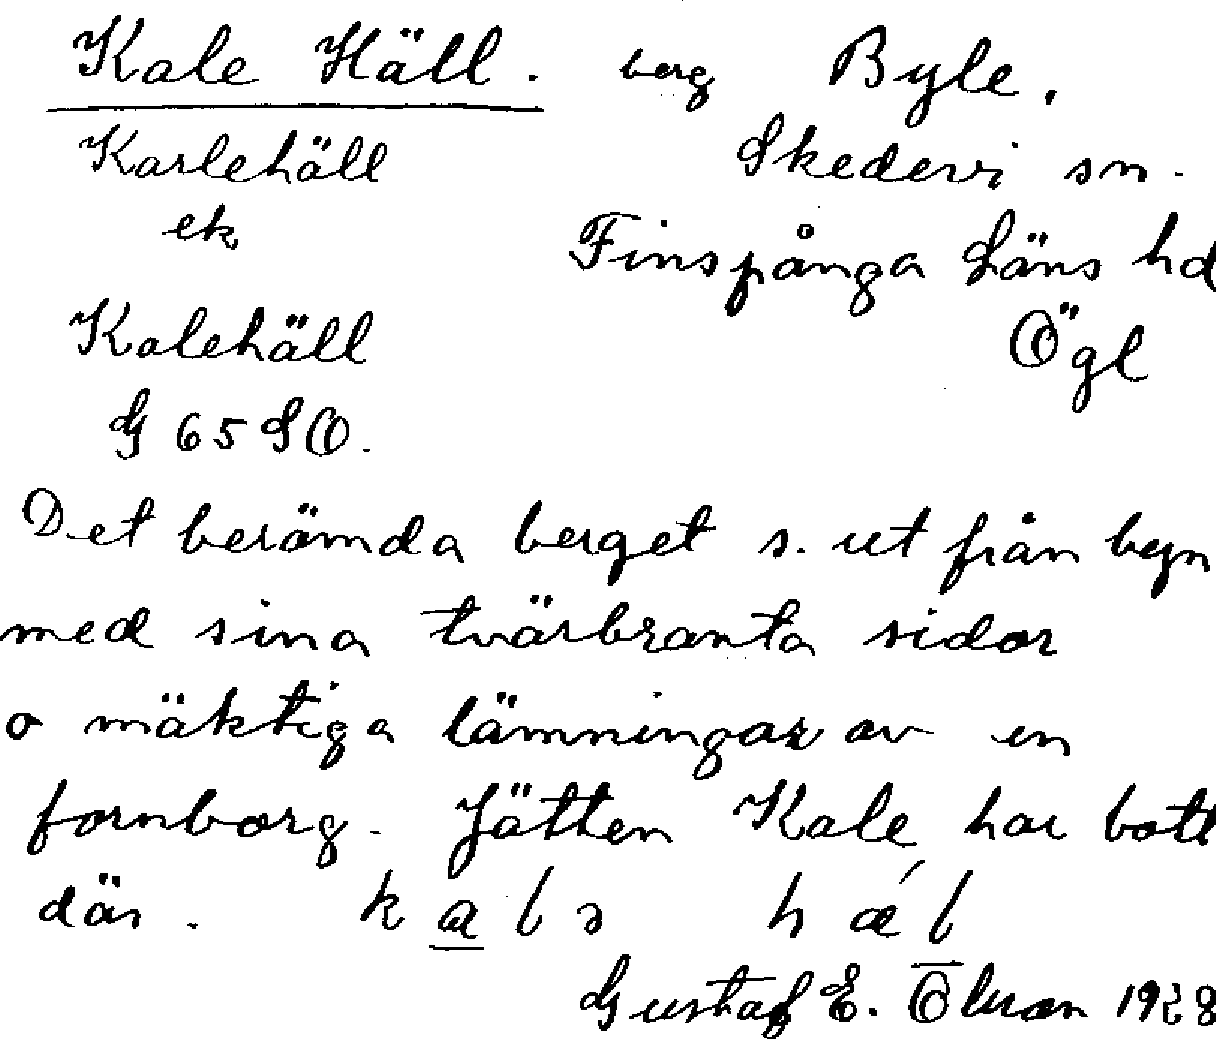 Kale Häll. berg Byle.
Karlehäll Skedevi sn.
ek Finspånga Läns hd
Kalehäll Ögl
G 65 SO.
Det berömda berget s. ut från byn
med sina tvärbranta sidor
o mäktiga lämningar av en
fornborg. Jätten Kale har bott
där. k a l ə h ǽ l
Gustaf E. 1928